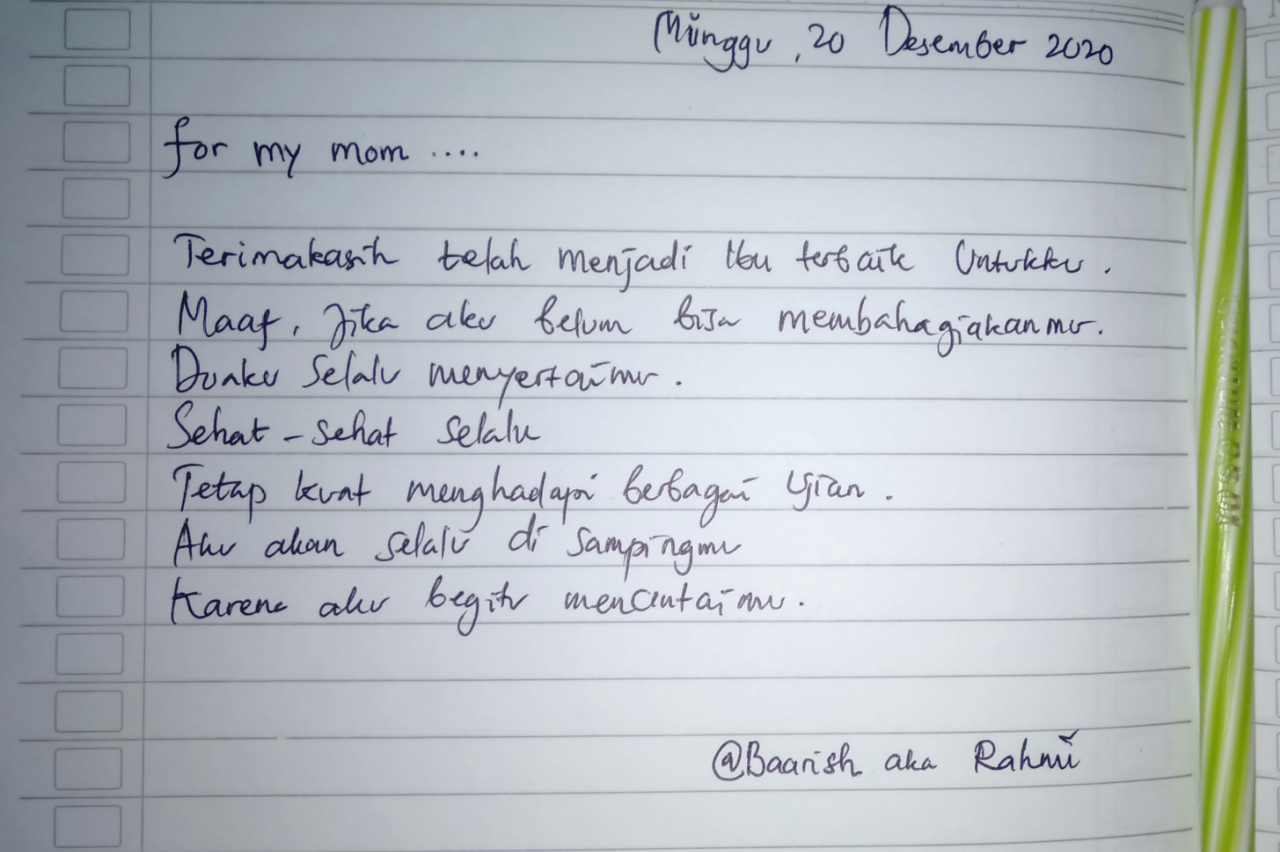 Minggu, 20 Desember 2020
for my mom ....
Terimakasih telah menjadi Ibu terbaik Untukku.
Maaf, Jika aku belum bisa membahagiakanmu.
Doaku Selalu menyertaimu.
Sehat-sehat selalu
Tetap kuat menghadapi berbagai Ujian.
Aku akan selalu di sampingmu
Karena aku begitu mencintaimu.
@Baarish aka Rahmi